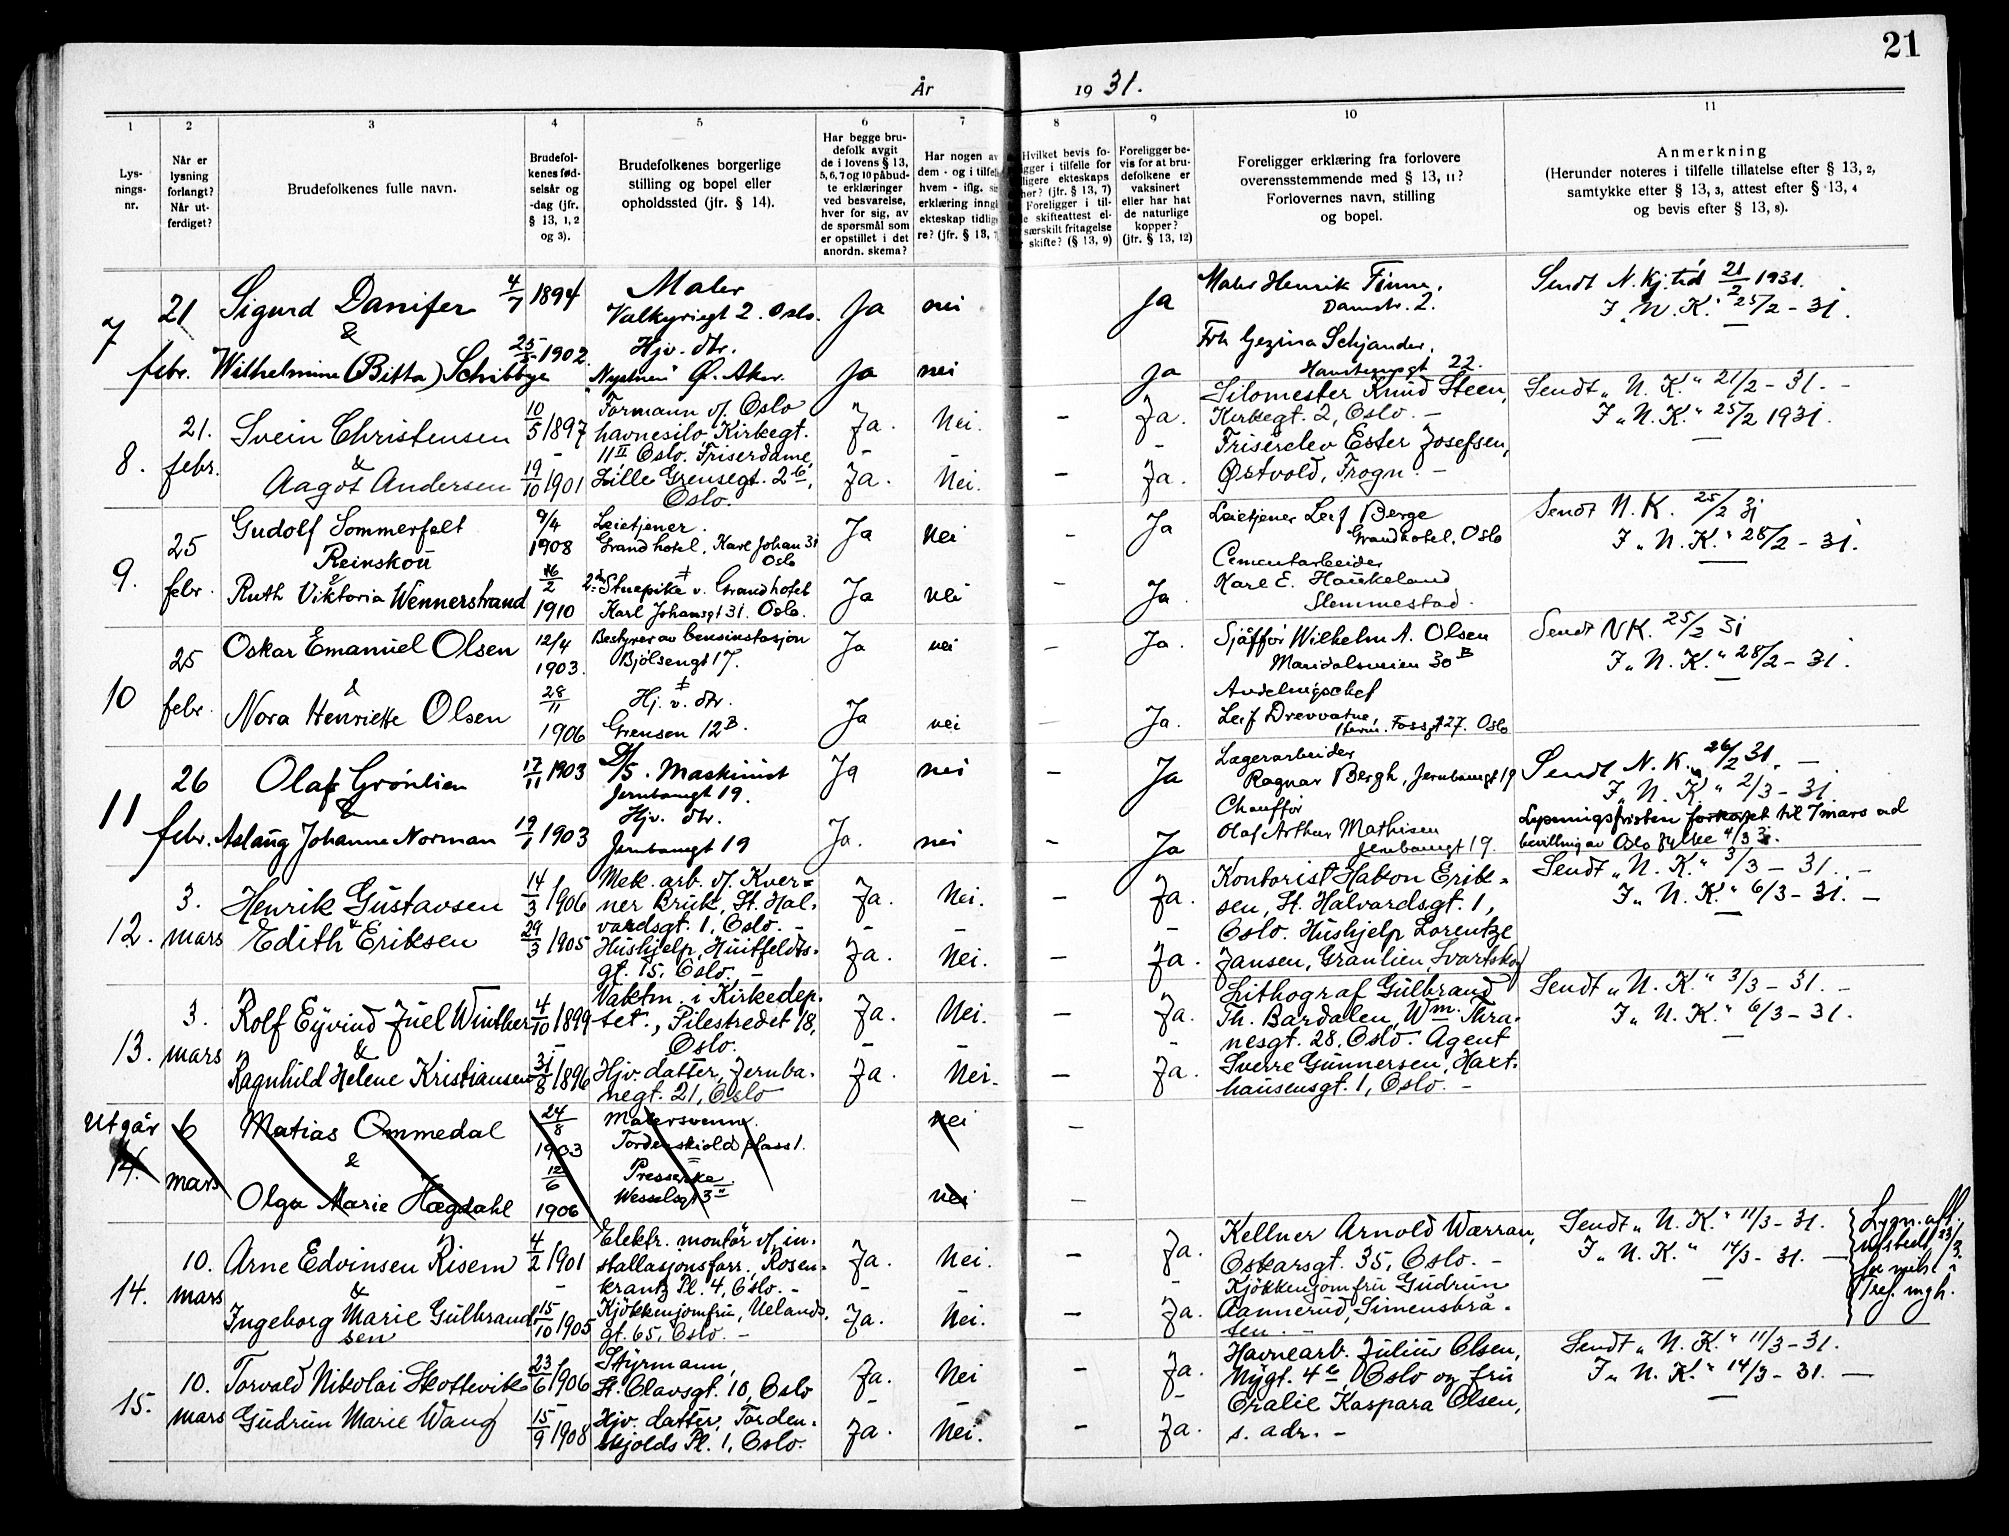 21
År 1931.
1
2
3
4
5
6
7
8
9
10
11
Lys-
nings-
nr.
Når er
lysning
forlangt?
Når ut-
ferdiget?
Brudefolkenes fulle navn.
Brudefol-
kenes fød-
selsår og
-dag (jfr.
§ 13, 1, 2
og 3).
Brudefolkenes borgerlige
stilling og bopel eller
opholdssted (jfr. § 14).
Har begge bru-
defolk avgit
de i lovens § 13,
5, 6, 7 og 10 påbud-
te erklæringer
ved besvarelse,
hver for sig, av
de spørsmål som
er opstillet i det
anordn. skema?
Har nogen av
dem - og i tilfelle
hvem - iflg.
erklæring inngått
ekteskap tidlige-
re? (jfr. § 13,
Hvilket bevis fo-
gger i tilfelle for
ligere ekteskaps
hør? (jfr. § 13, 7)
Foreligger i til-
e skifteattest el-
særskilt fritagelse
skifte? (§ 13, 9)
Foreligger be-
vis for at bru-
defolkene er
vaksinert
eller har hat
de naturlige
kopper?
(jfr. § 13, 12)
Foreligger erklæring fra forlovere
overensstemmende med § 13, 11?
Forlovernes navn, stilling
og bopel.
Anmerkning
(Herunder noteres i tilfelle tillatelse efter § 13, 2,
samtykke efter § 13, 3, attest efter § 13, 4
og bevis efter § 13, 8).
7
21
febr.
Sigurd Danifer
&
Wilhelmine (Bitta) Schibbye
4/7 1894
25/5 1902
Maler
Valkyriegt 2. Oslo.
Hjv. dtr.
Ø. Aker.
Ja
nei
Ja
nei
Ja
Ja
Maler Henrik Finne,
Damstr. 2.
Frk Gezina Schjander,
22.
Sendt N. Kj. tid 21/2 1931.
I „N. K." 25/2 - 31.
8.
21.
febr.
Svein Christensen
&
Aagot Andersen
10/5 1897
19/10 1901
Formann v/ Oslo
havnesilo, Kirkegt.
11 II Oslo. Friserdame,
Lille Grensegt. 2 b,
Oslo.
Ja.
Nei.
Ja.
Nei.
Ja.
Ja.
Silomester Knud Steen,
Kirkegt. 2, Oslo. -
Friserelev Ester Josefsen,
Østvold, Frogn. -
Sendt „N. K." 21/2 - 31. -
I „N. K." 25/2 1931.
9.
25
febr.
Gudolf Sommerfelt
Reinskou
&
Ruth Viktoria Wennerstrand
9/4
1908
16/2
1910
Leietjener.
Grand hotel, Karl Johan 31
Oslo
Stuepike v. Grand hotel
Karl Johansgt 31. Oslo.
Ja
nei
Ja
nei
Ja
Ja
Leietjener Leif Berge
Grand hotel, Oslo
Cementarbeider
Karl E. Haukeland
Slemmestad.
Sendt N. K. 25/2 31
I „N. K." 28/2 - 31.
10
25
febr.
Oskar Emanuel Olsen
&
Nora Henriette Olsen
12/4
1903.
28/11
1906
Bestyrer av bensinstasjon
Bjølsengt 17.
Hj. v. dtr.
Grensen 12 B.
Ja
nei
Ja
nei
Ja.
Ja.
Sjåffør Wilhelm A. Olsen
Maridalsveien 30 B
Avdelingschef
Leif Drevvatne,
Fossgt 27. Oslo
Sendt NK. 25/2 31
I „N. K." 28/2 - 31.
11
26
febr.
Olaf Grönlien
&
Aslaug Johanne Norman
17/11 1903
19/1 1903
D/S. Maskinist
Jernbanegt 19.
Hjv. dtr.
Jernbanegt 19
Ja
nei
Ja.
nei
Ja
Ja
Lagerarbeider
Ragnar Bergh, Jernbanegt 19
Chauffør
Olaf Arthur Mathisen
Jernbanegt 19
Sendt N. K. 26/2 31. -
I „N. K." 2/3 - 31
Lysningsfristen forkortet til 7 mars ved
bevillning av Oslo Fylke 4/3 31.
12.
3.
mars
Henrik Gustavsen
&
Edith Eriksen
14/3 1906
29/3 1905
Mek. arb. v/ Kver=
ner Bruk, St. Hal-
vardsgt. 1, Oslo. -
Hushjelp, Huitfeldts-
gt. 15, Oslo. -
Ja.
Nei.
Ja.
Nei.
Ja.
Ja.
Kontorist Hakon Erik-
sen, St. Halvardsgt. 1,
Oslo. Hushjelp Lorentze
Jansen, Granlien, Svartskog
Sendt „N. K." 3/3 - 31. -
I „N. K." 6/3 - 31. -
13.
3.
mars
Rolf Eyvind Juel Winther
&
Ragnhild Helene Kristiansen
4/10 1899
31/8 1896
Vaktm. i Kirkedep.
tet., Pilestredet 18,
Oslo.
Hjv. datter, Jernba-
negt. 21, Oslo
Ja.
Nei.
Ja.
Nei.
Ja.
Ja.
Lithograf Gulbrand
Th. Bardalen, Wm. Thra-
nesgt. 28, Oslo. Agent
Sverre Gunnersen, Haxt-
hausensgt. 1, Oslo. -
Sendt „N. K." 3/3 - 31. -
I „N. K." 6/3 - 31.
Utgår
14.
6
mars
Matias Ommedal
&
Olga Marie Hægdahl
24/8
1903
12/6
1906
Malersvenn.
Tordenskiolds plass 1.
Presserske.
Wesselsgt 3
nei
nei
14.
10.
mars
Arne Edvinsen Risem
&
Ingeborg Marie Gulbrand-
sen
4/2 1901
15/10 1905
Elektr. montör v/ in-
stallasjonsforr., Rosen-
krantz Pl. 4, Oslo. -
Kjökkenjomfru, Uelands-
gt. 65, Oslo. -
Ja.
Nei.
Ja.
Nei.
Ja.
Ja.
Kellner Arnold Warran,
Oskarsgt. 35, Oslo. -
Kjökkenjomfru Gudrun
Aannerud, Simensbrå-
ten. -
Sendt „N. K." 11/3 - 31.
I „N. K." 14/3 - 31. -
Lysn. att.
utstedt 23/3.
15.
10.
mars
Torvald Nikolai Skottevik
Gudrun Marie Wang
23/6 1906
15/9 1908
Styrmann,
St. Olavsgt. 10, Oslo
Hjv. datter, Torden-
skjolds Pl. 1, Oslo.
Ja.
Nei
Ja.
Nei.
Ja.
Ja.
Havnearb. Julius Olsen,
Nygt. 4 b, Oslo og fru
Oralie Kaspara Olsen,
s. adr. -
Sendt „N. K." 11/3 - 31.
I „N. K." 14/3 - 31. -